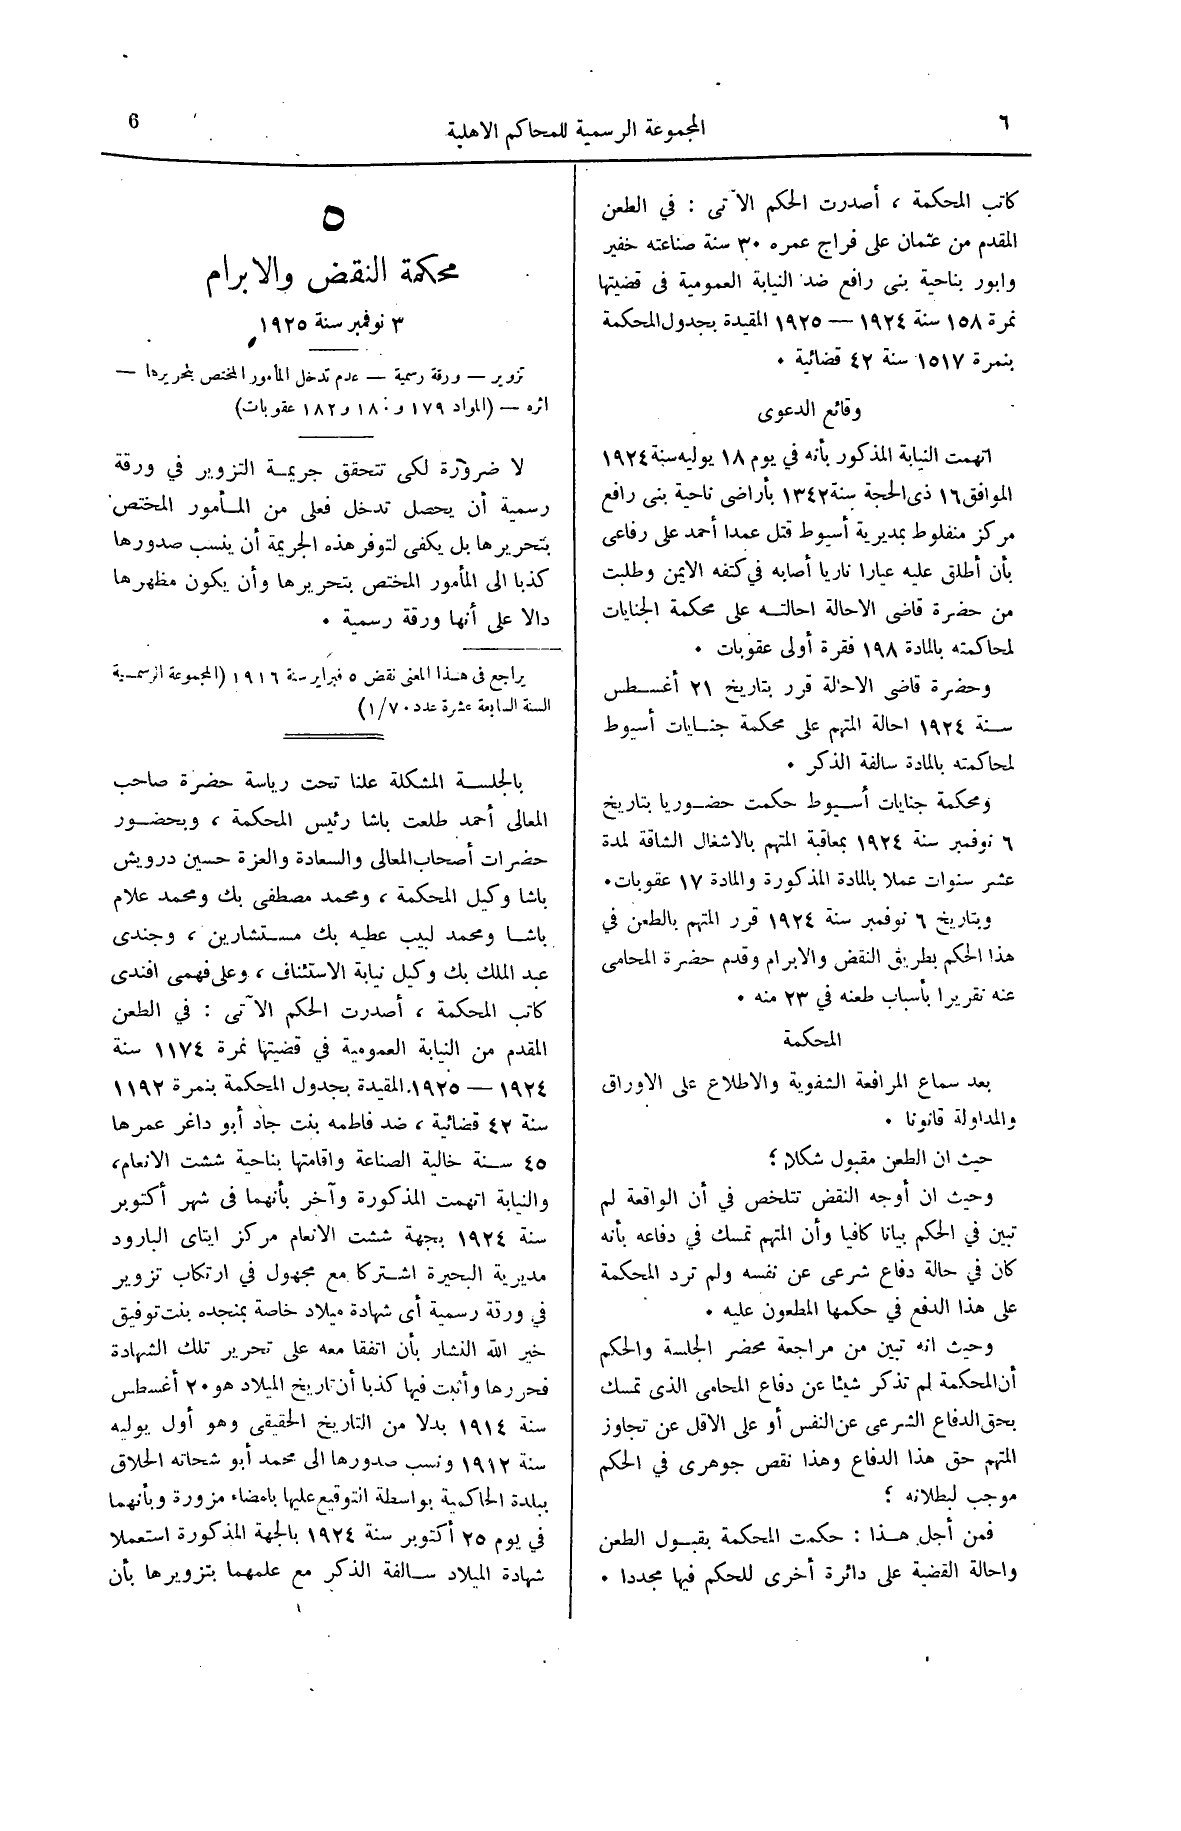 ٦
المجموعة الرسمية للمحاكم الاهلية
6
كاتب المحكمة ، أصدرت الحكم الآتى : في الطعن
المقدم من عثمان على فراج عمره ٣٠ سنة صناعته خفير
وابور بناحية بنى رافع ضد النيابة العمومية فى قضيتها
نمرة ١٥٨ سنة ١٩٢٤ — ١٩٢٥ المقيدة بجدول المحكمة
بنمرة ١٥١٧ سنة ٤٢ قضائية .
وقائع الدعوى
اتهمت النيابة المذكور بأنه في يوم ١٨ يوليه سنة ١٩٢٤
الموافق ١٦ ذى الحجة سنة ١٣٤٢ بأراضى ناحية بنى رافع
مركز منفلوط بمديرية أسيوط قتل عمدا أحمد على رفاعى
بأن أطلق عليه عيارا ناريا أصابه في كتفه الايمن وطلبت
من حضرة قاضى الاحالة احالته على محكمة الجنايات
لمحاكمته بالمادة ١٩٨ فقرة أولى عقوبات .
وحضرة قاضى الاحالة قرر بتاريخ ٢١ أغسطس
سنة ١٩٢٤ احالة المتهم على محكمة جنايات أسيوط
لمحاكمته بالمادة سالفة الذكر .
ومحكمة جنايات أسيوط حكمت حضوريا بتاريخ
٦ نوفمبر سنة ١٩٢٤ بمعاقبة المتهم بالاشغال الشاقة لمدة
عشر سنوات عملا بالمادة المذكورة والمادة ١٧ عقوبات .
وبتاريخ ٦ نوفمبر سنة ١٩٢٤ قرر المتهم بالطعن في
هذا الحكم بطريق النقض والابرام وقدم حضرة المحامى
عنه تقريرا بأسباب طعنه في ٢٣ منه .
المحكمة
بعد سماع المرافعة الشفوية والاطلاع على الاوراق
والمداولة قانونا .
حيث ان الطعن مقبول شكلا ؛
وحيث ان أوجه النقض تتلخص في أن الواقعة لم
تبين في الحكم بيانا كافيا وأن المتهم تمسك في دفاعه بأنه
كان في حالة دفاع شرعى عن نفسه ولم ترد المحكمة
على هذا الدفع في حكمها المطعون عليه .
وحيث انه تبين من مراجعة محضر الجلسة والحكم
أن المحكمة لم تذكر شيئا عن دفاع المحامى الذى تمسك
بحق الدفاع الشرعى عن النفس أو على الاقل عن تجاوز
المتهم حق هذا الدفاع وهذا نقص جوهرى في الحكم
موجب لبطلانه ؛
فمن أجل هذا : حكمت المحكمة بقبول الطعن
واحالة القضية على دائرة أخرى للحكم فيها مجددا .
٥
محكمة النقض والابرام
٣ نوفمبر سنة ١٩٢٥
تزوير — ورقة رسمية — عدم تدخل المأمور المختص بتحريرها —
اثره — (المواد ١٧٩ و ١٨٠ و ١٨٢ عقوبات)
لا ضرورة لكى تتحقق جريمة التزوير في ورقة
رسمية أن يحصل تدخل فعلى من المأمور المختص
بتحريرها بل يكفى لتوفر هذه الجريمة أن ينسب صدورها
كذبا الى المأمور المختص بتحريرها وأن يكون مظهرها
دالا على أنها ورقة رسمية .
يراجع فى هذا المعنى نقض ٥ فبراير سنة ١٩١٦ (المجموعة الرسمية
السنة السابعة عشرة عدد ١/٧٠)
بالجلسة المشكلة علنا تحت رياسة حضرة صاحب
المعالى أحمد طلعت باشا رئيس المحكمة ، وبحضور
حضرات أصحاب المعالى والسعادة والعزة حسين درويش
باشا وكيل المحكمة ، ومحمد مصطفى بك ومحمد علام
باشا ومحمد لبيب عطيه بك مستشارين ، وجندى
عبد الملك بك وكيل نيابة الاستئناف ، وعلى فهمى افندى
كاتب المحكمة ، أصدرت الحكم الآتى : في الطعن
المقدم من النيابة العمومية في قضيتها نمرة ١١٧٤ سنة
١٩٢٤ — ١٩٢٥ المقيدة بجدول المحكمة بنمرة ١١٩٢
سنة ٤٢ قضائية ، ضد فاطمه بنت جاد أبو داغر عمرها
٤٥ سنة خالية الصناعة واقامتها بناحية ششت الانعام،
والنيابة اتهمت المذكورة وآخر بأنهما فى شهر أكتوبر
سنة ١٩٢٤ بجهة ششت الانعام مركز ايتاى البارود
مديرية البحيرة اشتركا مع مجهول في ارتكاب تزوير
في ورقة رسمية أى شهادة ميلاد خاصة بمنجده بنت توفيق
خير الله النشار بأن اتفقا معه على تحرير تلك الشهادة
فحررها وأثبت فيها كذبا أن تاريخ الميلاد هو ٢٠ أغسطس
سنة ١٩١٤ بدلا من التاريخ الحقيقى وهو أول يوليه
سنة ١٩١٢ ونسب صدورها الى محمد أبو شحاته الحلاق
ببلدة الحاكمية بواسطة التوقيع عليها بامضاء مزورة وبأنهما
في يوم ٢٥ أكتوبر سنة ١٩٢٤ بالجهة المذكورة استعملا
شهادة الميلاد سالفة الذكر مع علمهما بتزويرها بأن